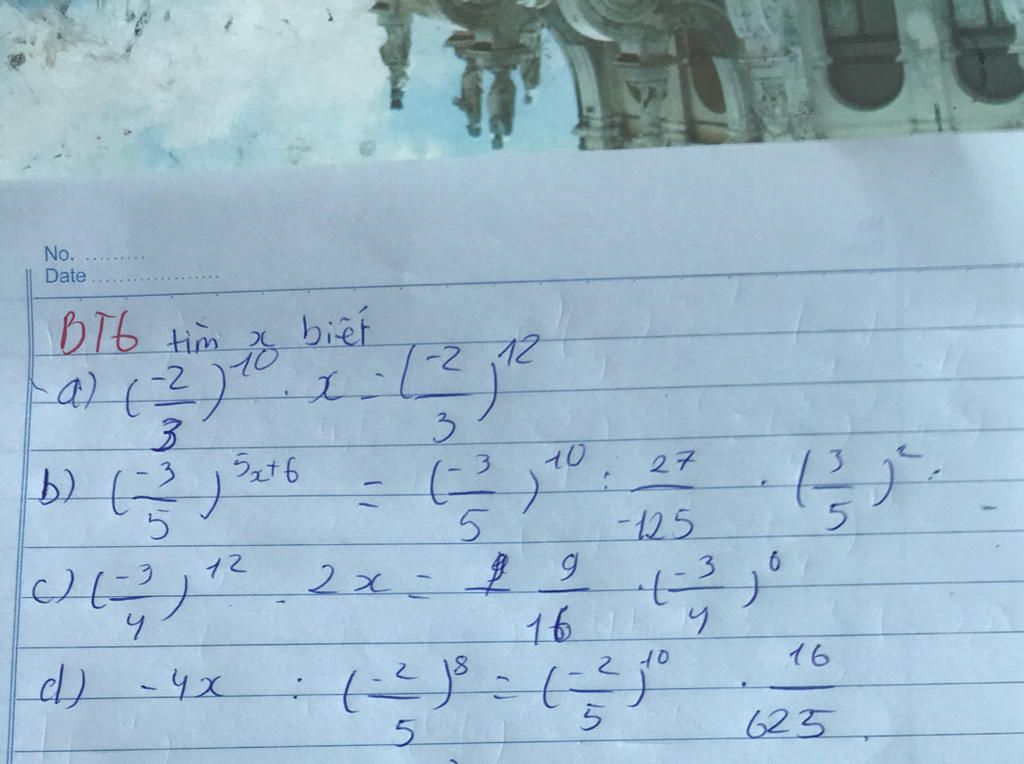 No. .........
Date ...................
BT6 tìm x biết
a) (-2/3)^10 . x = (-2/3)^12
b) (-3/5)^5x+6 = (-3/5)^10 : 27/-125 . (3/5)^2 .
c) (-3/4)^12 . 2x = 9/16 . (-3/4)^6
d) -4x : (-2/5)^8 = (-2/5)^10 . 16/625 .